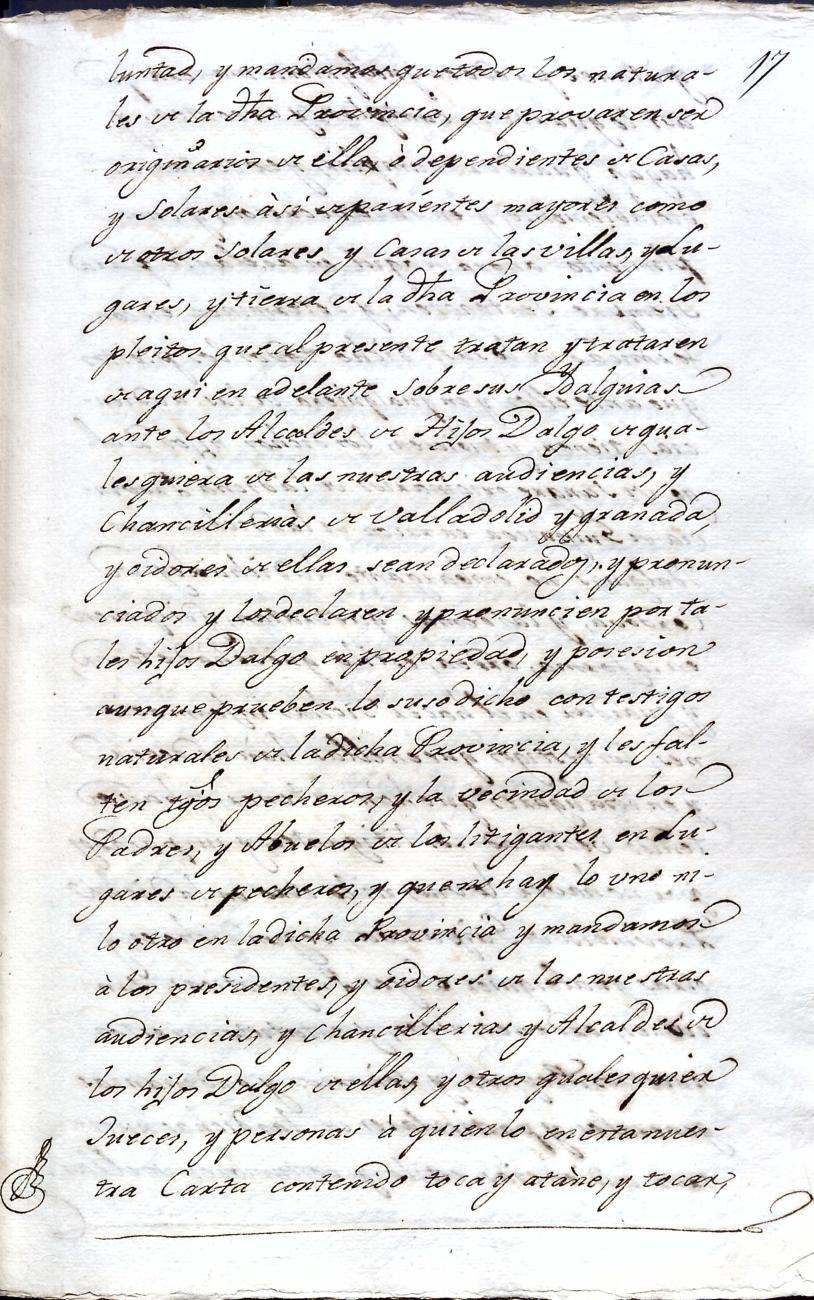 17
luntad, y mandamos que todos los natura-
les de la dha Provincia, que provaren ser
originarios de ella, ò dependientes de Casas,
y Solares àsi de parientes mayores como
de otros Solares y Casas de las villas, y Lu-
gares, y tierra de la dha Provincia en los
pleitos que al presente tratan y trataren
de aqui en adelante sobre sus Ydalguias
ante los Alcaldes de Hijos Dalgo de qua-
lesquiera de las nuestras audiencias, y
Chancillerias de Valladolid y granada,
y oidores de ellas sean declarados, y pronun-
ciados y los declaren y pronuncien por ta-
les hijos Dalgo en propiedad, y posesion
aunque prueben lo susodicho con testigos
naturales de la dicha Provincia, y les fal-
ten tgos pecheros, y la vecindad de los
Padres, y Abuelos de los litigantes en Lu-
gares de pecheros, y que no hay lo uno ni
lo otro en la dicha Provincia y mandamos
à los presidentes, y oidores de las nuestras
audiencias, y Chancillerias y Alcaldes de
los hijos Dalgo de ellas, y otros qualesquier
Jueces, y personas à quien lo en esta nues-
tra Carta contenido toca y atañe, y tocar,